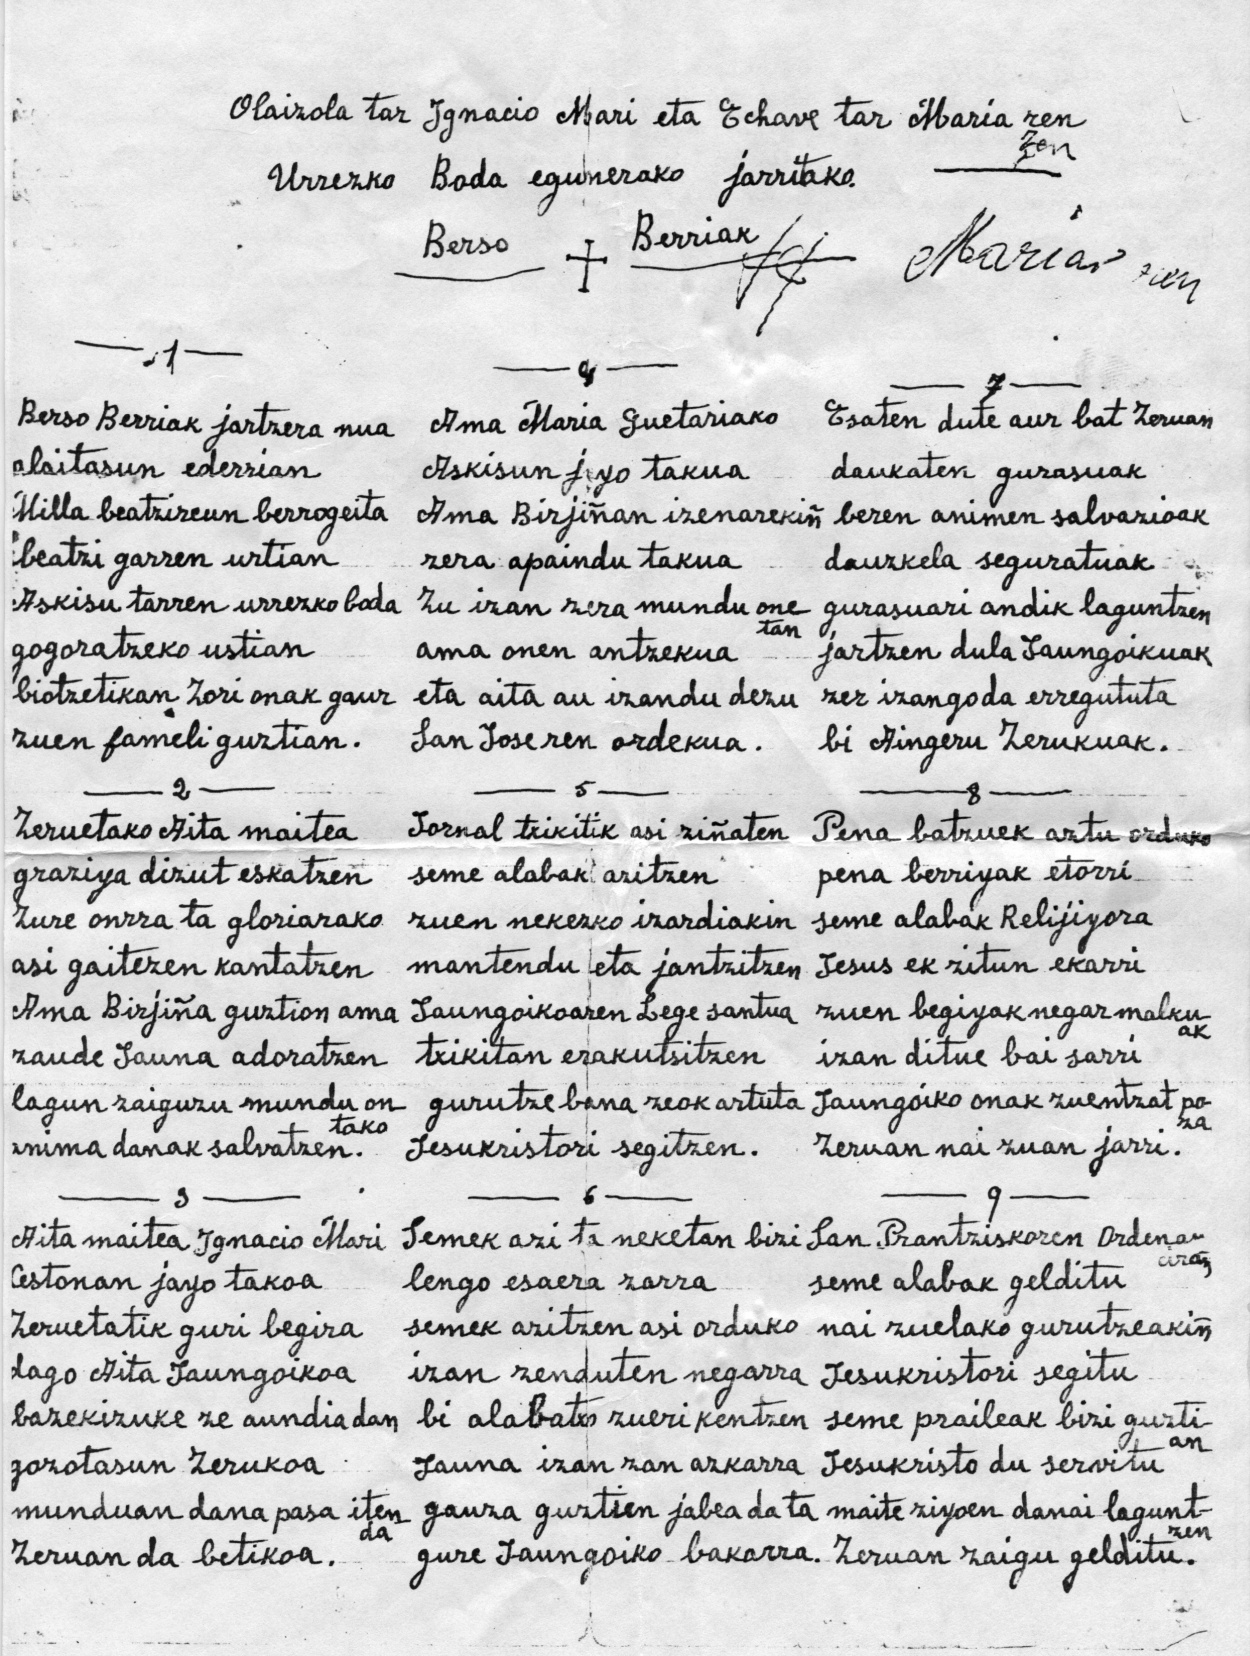 Olaizola tar Ignacio Mari eta Echave tar Maria ren
zen
Urrezko Boda egunerako jarritako.
Berso + Berriak
Maria ren
1
Berso Berriak jartzera nua
alaitasun ederrian
Milla beatzireun berrogeita
beatzi garren urtian
Askisu tarren urrezko boda
gogoratzeko ustian
biotzetikan Zori onak gaur
zuen fameli guztian.
2
Zeruetako Aita maitea
graziya dizut eskatzen
Zure onrra ta gloriarako
asi gaitezen kantatzen
Ama Birjiña guztion ama
zaude Jauna adoratzen
lagun zaiguzu mundu on
tako
anima danak salvatzen.
3
Aita maitea Ignacio Mari
Cestonan jayo takoa
Zeruetatik guri begira
dago Aita Jaungoikoa
bazekizuke ze aundia dan
gozotasun Zerukoa
munduan dana pasa iten
da
Zeruan da betikoa.
4
Ama Maria Guetariako
Askisun jayo takua
Ama Birjiñan izenarekiñ
zera apaindu takua
Zu izan zera mundu one
tan
ama onen antzekua
eta aita au izandu dezu
San Jose ren ordekua.
5
Jornal txikitik asi ziñaten
seme alabak azitzen
zuen nekezko izardiakin
mantendu eta jantzitzen
Jaungoikoaren Lege santua
txikitan erakutsitzen
gurutze bana zeok artuta
Jesukristori segitzen.
6
Semek azi ta neketan bizi
lengo esaera zarra
semek azitzen asi orduko
izan zenduten negarra
bi alabatxo zueri kentzen
Jauna izan zan azkarra
gauza guztien jabea da ta
gure Jaungoiko bakarra.
7
Esaten dute aur bat Zeruan
daukaten gurasuak
beren animen salvazioak
dauzkela seguratuak
gurasuari andik laguntzen
jartzen dula Jaungoikuak
zer izango da erregututa
bi Aingeru Zerukuak.
8
Pena batzuek aztu orduko
pena berriyak etorri
seme alabak Relijiyora
Jesus ek zitun ekarri
zuen begiyak negar malku
ak
izan ditue bai sarri
Jaungoiko onak zuentzat po
za
Zeruan nai zuan jarri.
9
San Prantziskoren Ordenan
seme alabak gelditu
nai zuelako gurutzeakiñ
Jesukristori segitu
seme praileak bizi guzti
an
Jesukristo du servitu
maite ziyoen danai lagunt
zen
Zeruan zaigu gelditu.